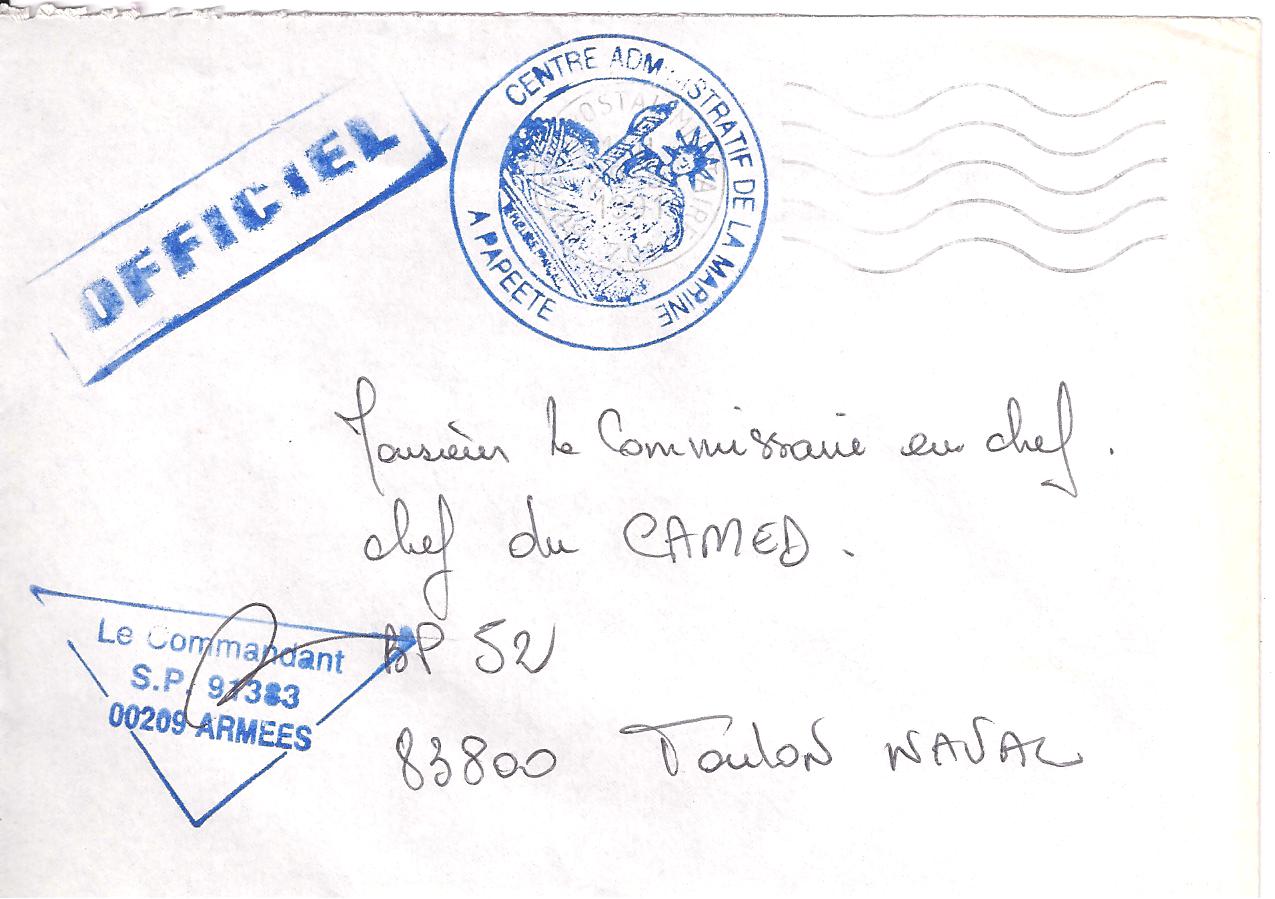 OFFICIEL
CENTRE ADMINISTRATIF DE LA MARINE
A PAPEETE
Monsieur le Commissaire en chef.
chef du CAMED.
BP 52
83800 Toulon NAVAL
Le Commandant
S.P. 91383
00209 ARMEES